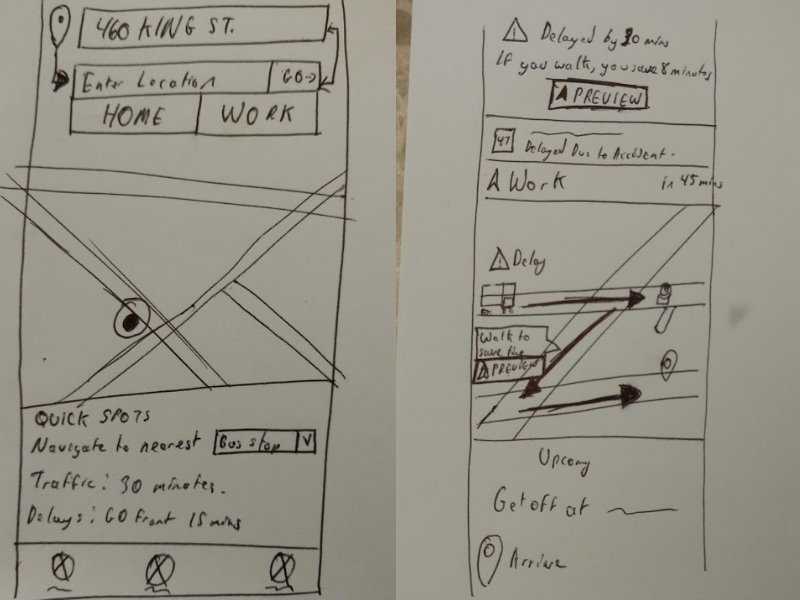 460 KING ST.
Enter Location GO→
HOME WORK
QUICK SPOTS
Navigate to nearest Bus stop V
Traffic: 30 minutes.
Delays: GO Front 15 mins
Delayed by 30 mins
If you walk, you save 8 minutes
PREVIEW
47
Delayed Due to Accident.
Work in 45 mins
Delay
Walk to
save
PREVIEW
Get off at
Arrive